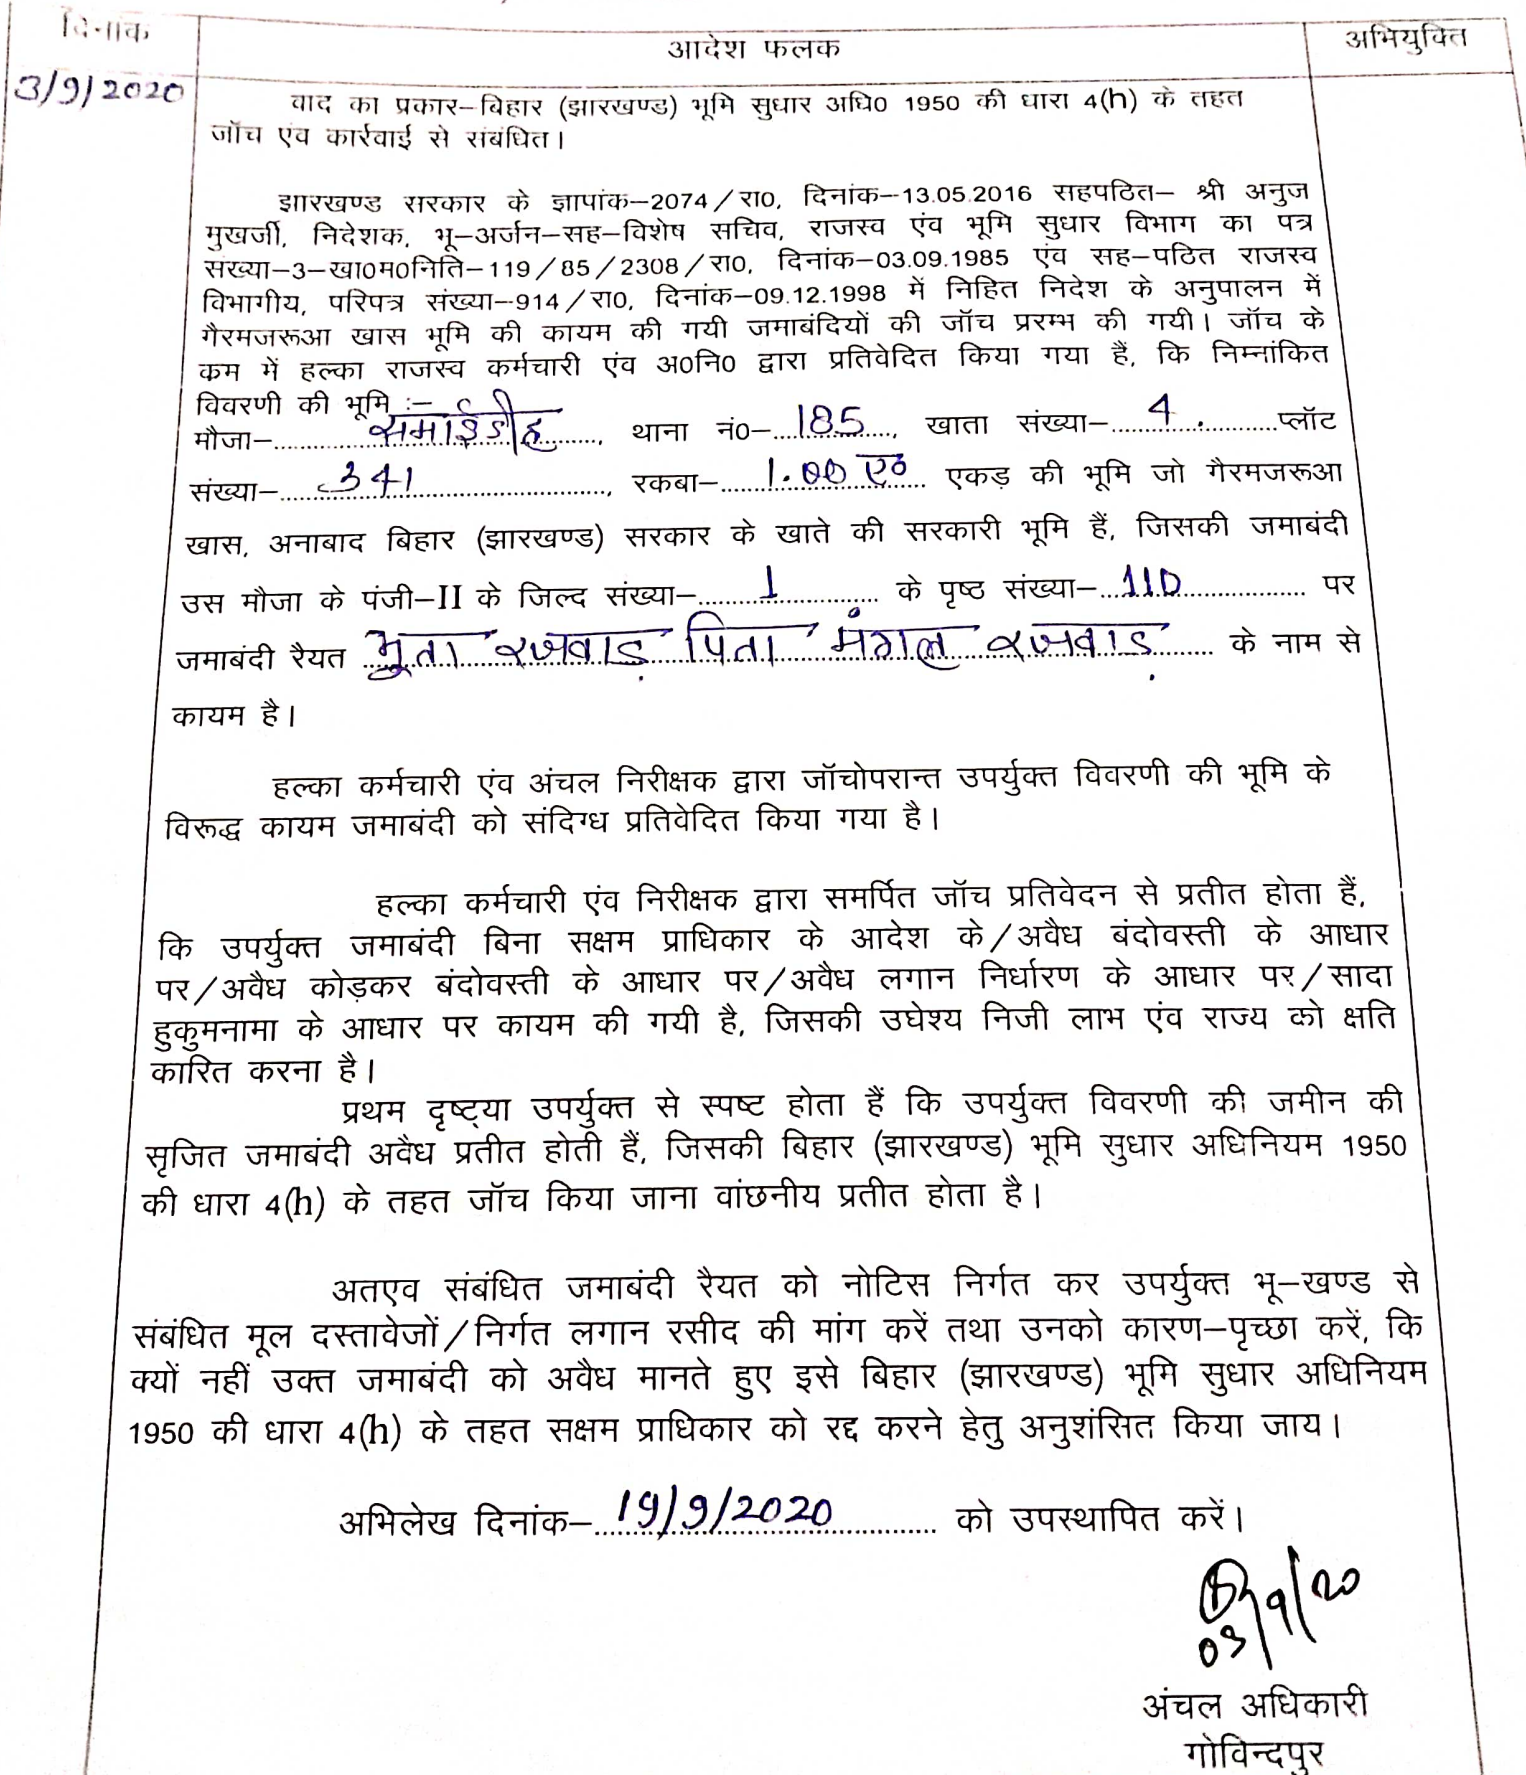 दिनांक
आदेश फलक
अभियुक्ति
3/9/2020
वाद का प्रकार–बिहार (झारखण्ड) भूमि सुधार अधि0 1950 की धारा 4(h) के तहत
जॉच एंव कार्रवाई से संबंधित।
झारखण्ड सरकार के ज्ञापांक–2074/रा0, दिनांक–13.05.2016 सहपठित– श्री अनुज
मुखर्जी, निदेशक, भू–अर्जन–सह–विशेष सचिव, राजस्व एंव भूमि सुधार विभाग का पत्र
संख्या–3–खा0म0निति–119/85/2308/रा0, दिनांक–03.09.1985 एंव सह–पठित राजस्व
विभागीय, परिपत्र संख्या–914/रा0, दिनांक–09.12.1998 में निहित निदेश के अनुपालन में
गैरमजरूआ खास भूमि की कायम की गयी जमाबंदियों की जॉच प्ररम्भ की गयी। जॉच के
कम में हल्का राजस्व कर्मचारी एंव अ0नि0 द्वारा प्रतिवेदित किया गया हैं, कि निम्नांकित
विवरणी की भूमि :–
मौजा–समाईडीह, थाना नं0–185, खाता संख्या–4.प्लॉट
संख्या–341, रकबा–1.00 ए0 एकड़ की भूमि जो गैरमजरूआ
खास, अनाबाद बिहार (झारखण्ड) सरकार के खाते की सरकारी भूमि हैं, जिसकी जमाबंदी
उस मौजा के पंजी–II के जिल्द संख्या–1 के पृष्ठ संख्या–110 पर
जमाबंदी रैयत भुता रजवाड़ पिता मंगल रजवाड़ के नाम से
कायम है।
हल्का कर्मचारी एंव अंचल निरीक्षक द्वारा जॉचोपरान्त उपर्युक्त विवरणी की भूमि के
विरूद्ध कायम जमाबंदी को संदिग्ध प्रतिवेदित किया गया है।
हल्का कर्मचारी एंव निरीक्षक द्वारा समर्पित जॉच प्रतिवेदन से प्रतीत होता हैं,
कि उपर्युक्त जमाबंदी बिना सक्षम प्राधिकार के आदेश के/अवैध बंदोवस्ती के आधार
पर/अवैध कोड़कर बंदोवस्ती के आधार पर/अवैध लगान निर्धारण के आधार पर/सादा
हुकुमनामा के आधार पर कायम की गयी है, जिसकी उघेश्य निजी लाभ एंव राज्य को क्षति
कारित करना है।
प्रथम दृष्ट्या उपर्युक्त से स्पष्ट होता हैं कि उपर्युक्त विवरणी की जमीन की
सृजित जमाबंदी अवैध प्रतीत होती हैं, जिसकी बिहार (झारखण्ड) भूमि सुधार अधिनियम 1950
की धारा 4(h) के तहत जॉच किया जाना वांछनीय प्रतीत होता है।
अतएव संबंधित जमाबंदी रैयत को नोटिस निर्गत कर उपर्युक्त भू–खण्ड से
संबंधित मूल दस्तावेजों/निर्गत लगान रसीद की मांग करें तथा उनको कारण–पृच्छा करें, कि
क्यों नहीं उक्त जमाबंदी को अवैध मानते हुए इसे बिहार (झारखण्ड) भूमि सुधार अधिनियम
1950 की धारा 4(h) के तहत सक्षम प्राधिकार को रद्द करने हेतु अनुशंसित किया जाय।
अभिलेख दिनांक–19/9/2020 को उपस्थापित करें।
03/9/20
अंचल अधिकारी
गोविन्दपुर